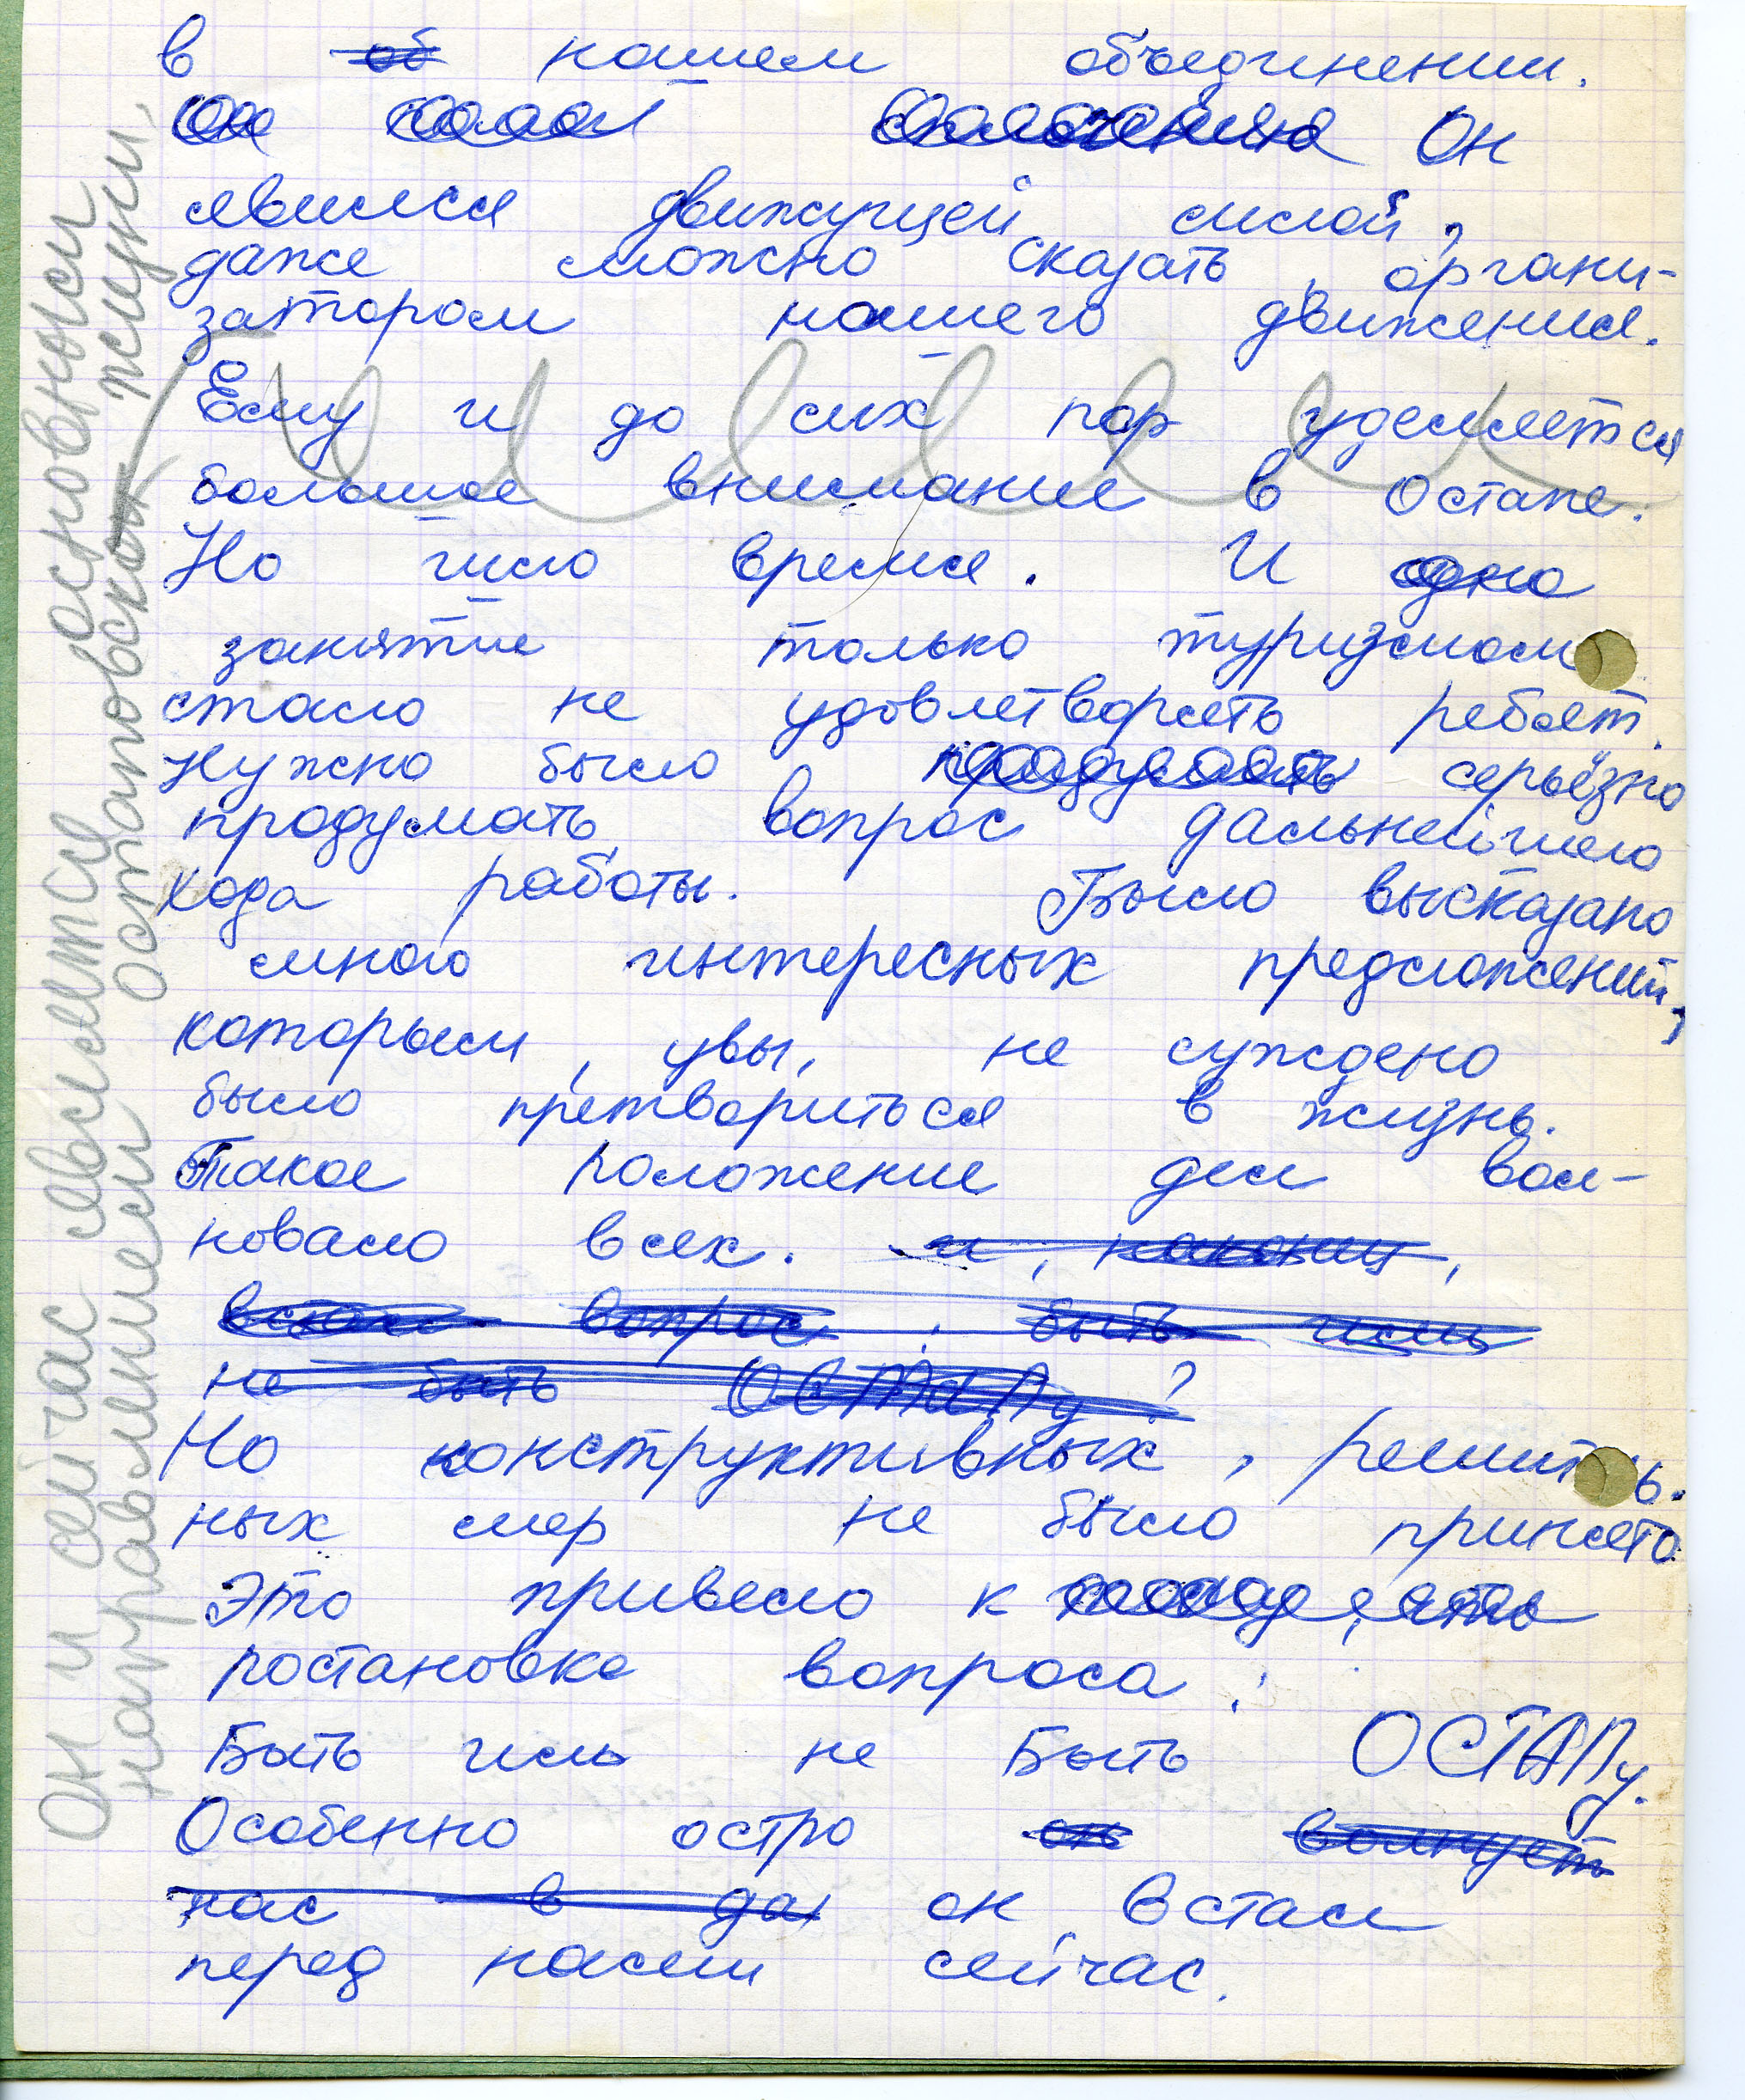 в об нашем объединении.
Он
явился движущей силой,
даже можно сказать, органи-
затором нашего движения.
Ему и до сих пор уделяется
большое внимание в Остапе.
Но шло время. И одно
занятие только туризмом
стало не удовлетворять ребят.
Нужно было продумать серьёзно
продумать вопрос дальнейшего
хода работы. Было высказано
много интересных предложений,
которым, увы, не суждено
было претвориться в жизнь.
Такое положение дел вол-
новало всех. и, наконец,
встал вопрос: быть иль
не быть ОСТАПу?
Но конструктивных, решитель-
ных мер не было принято
Это привело к
постановке вопроса:
Быть иль не Быть ОСТАПу.
Особенно остро он волнует
нас в да он встал
перед нами сейчас.
Он и сейчас является основным
направлением остаповской жизни,